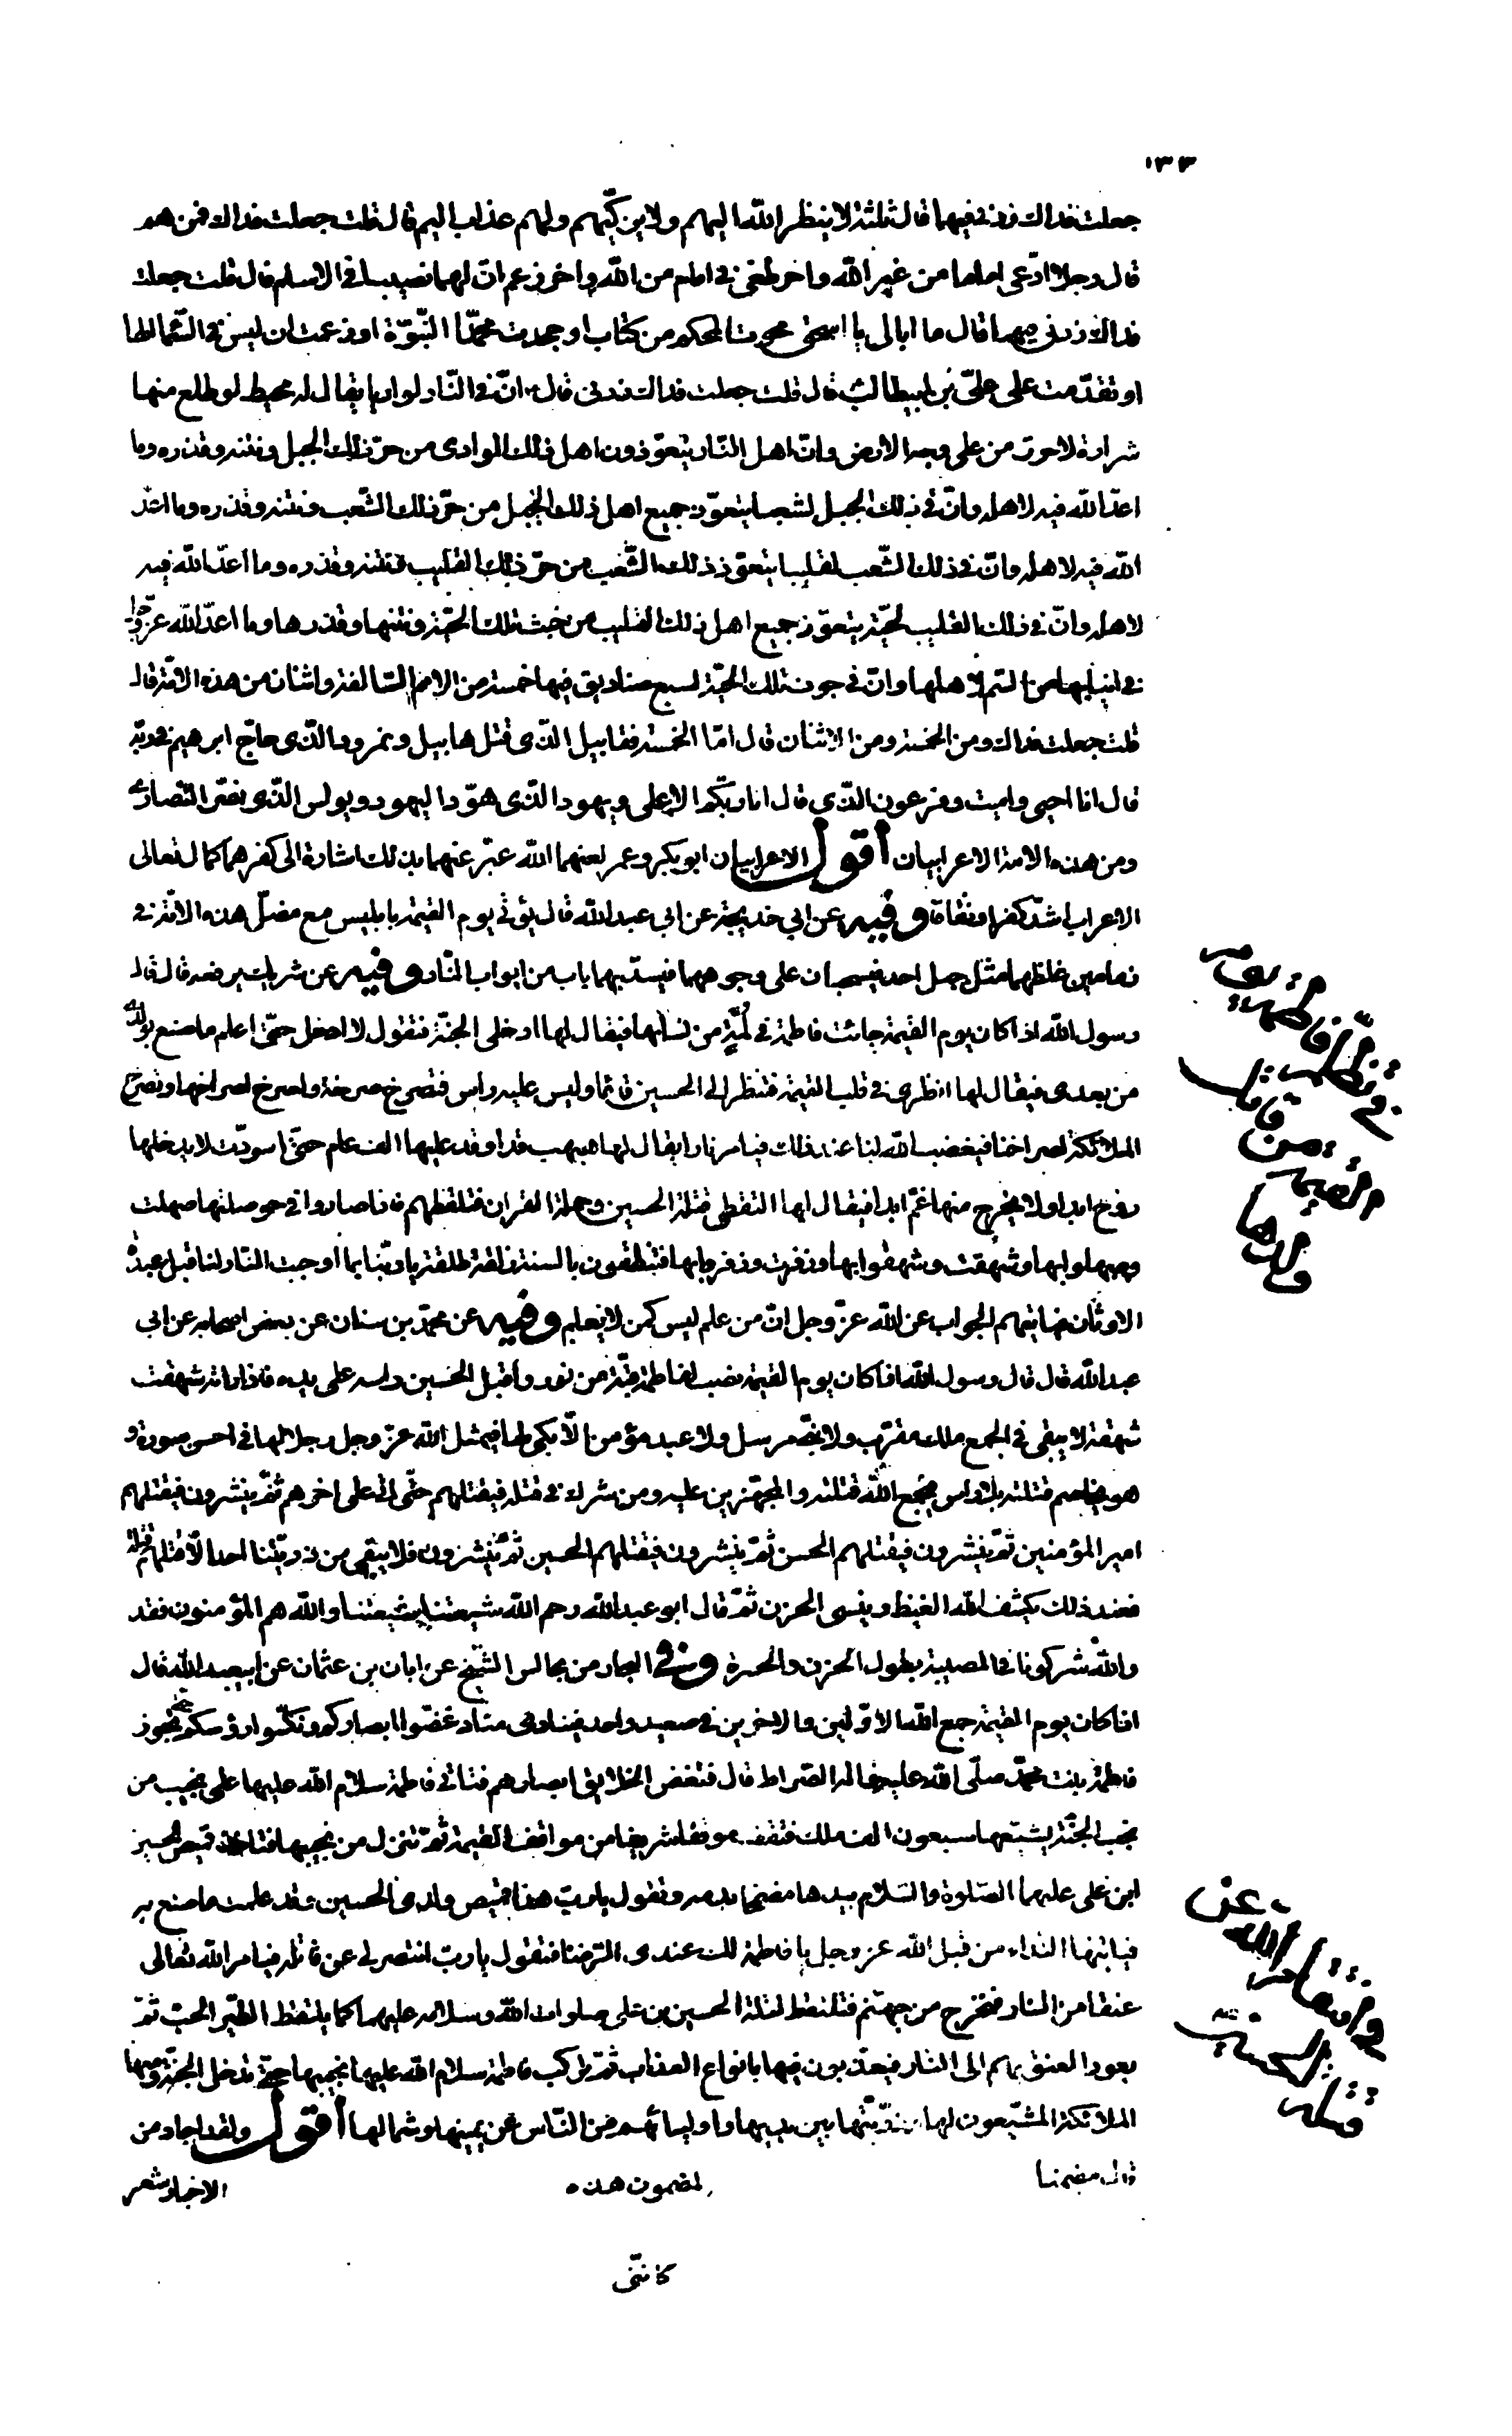 ١٣٣
جعلت فداك زدني فيهما قال ثلثة لا ينظر الله اليهم ولا يزكّيهم ولهم عذاب اليم قال قلت جعلت فداك فمن هم
قال رجل ادّعى اماما من غير الله واخر طعن في امام من الله واخر زعم انّ لهما نصيبا في الاسلام قال قلت جعلت
فداك زدني فيهما قال ما ابالى يا اسحق محوت المحكم من كتاب او جحدت محمّدا النّبوّة او زعمت ان ليس في السّماء الها
او تقدّمت على علىّ بن ابيطالب قال قلت جعلت فداك زدنى قال انّ في النّار لواديا يقال له محيط لو طلع منها
شرارة لاحرق من على وجه الارض وانّ اهل النّار يتعوّذون اهل ذلك الوادى من حرّ ذلك الجبل ونتنه وقذره وما
اعدّ الله فيه لاهله وانّ في ذلك الجبل لشعبا يتعوّذ جميع اهل ذلك الجبل من حرّ ذلك الشّعب ونتنه وقذره وما اعدّ
الله فيه لاهله وانّ في ذلك الشّعب لقليبا يتعوّذ ذلك الشّعب من حرّ ذلك القليب ونتنه وقذره وما اعدّ الله فيه
لاهله وانّ في ذلك القليب لحيّة يتعوّذ جميع اهل ذلك القليب من خبث تلك الحيّة ونتنها وقذرها وما اعدّ الله عزّ وجلّ
في انيابها من السّم لاهلها وانّ في جوف تلك الحيّة لسبع صناديق فيها خمسة من الامم السّالفة واثنان من هذه الامّة قال
قلت جعلت فداك ومن الخمسة ومن الاثنان قال امّا الخمسة فقابيل الّذى قتل هابيل ونمرود الّذى حاجّ ابرهيم في ربّه
قال انا احيى واميت وفرعون الّذى قال انا ربّكم الاعلى ويهودا الّذى هوّد اليهود وبولس الّذى نصّر النّصارى
ومن هذه الامة الاعرابيان أقول الاعرابيان ابوبكر وعمر لعنهما الله عبّر عنهما بذلك اشارة الى كفرهما كما قال تعالى
الاعراب اشدّ كفرا ونفاقا وفيه عن ابي خديجة عن ابى عبد الله قال يؤتى يوم القيمة بابليس مع مضلّ هذه الامّة في
زمامين غلظهما مثل جبل احد فيسحبان على وجوههما فيسدّ بهما باب من ابواب النّار وفيه عن شريك يرفعه قال قال
رسول الله اذا كان يوم القيمة جائت فاطمة في لمّة من نسائها فيقال لها ادخلى الجنّة فتقول لا ادخل حتّى اعلم ما صنع بولدى
من بعدى فيقال لها انظرى في قلب القيمة فتنظر الى الحسين قائما وليس عليه راس فتصرخ صرخة واصرخ لصراخها وتصرخ
الملائكة لصراخنا فيغضب الله لنا عند ذلك فيامر نارا يقال لها هبهب قد اوقد عليها الف عام حتّى اسودّت لا يدخلها
روح ابدا ولا يخرج منها غمّ ابدا فيقال لها التقطى قتلة الحسين وحملة القران فتلتقطهم فاذا صاروا في حوصلتها صهلت
وصهلوا بها وشهقت وشهقوا بها وزفرت وزفروا بها فينطقون بالسنة ذلقة طلقة يا ربّنا بما اوجبت النّار لنا قبل عبدة
الاوثان فياتيهم الجواب عن الله عزّ وجل انّ من علم ليس كمن لا يعلم وفيه عن محمّد بن سنان عن بعض اصحابه عن ابى
عبد الله قال قال رسول الله اذا كان يوم القيمة نصب لفاطمة قبّة من نور واقبل الحسين راسه على يده فاذا راته شهقت
شهقة لا يبقى في الجمع ملك مقرّب ولا نبىّ مرسل ولا عبد مؤمن الّا بكى لها فيمثل الله عزّ وجل رجلا لها في احسن صورة و
هو يخاصم قتلته بلا راس فيجمع الله قتلته والمجهّزين عليه ومن شرك في قتله فيقتلهم حتّى اتى على اخرهم ثمّ ينشرون فيقتلهم
امير المؤمنين ثمّ ينشرون فيقتلهم الحسن ثمّ ينشرون فيقتلهم الحسين ثمّ ينشرون فلا يبقى من ذريّتنا احد الّا قتلهم قتلة
فعند ذلك يكشف الله الغيظ وينسى الحزن ثمّ قال ابو عبد الله رحم الله شيعتنا شيعتنا والله هم المؤمنون فقد
والله شركونا في المصيبة بطول الحزن والحسرة وفي البحار من مجالس الشّيخ عن ابان بن عثمان عن ابيعبد الله قال
اذا كان يوم القيمة جمع الله الاوّلين والاخرين في صعيد واحد فينادى مناد غضّوا ابصاركم ونكّسوا رؤسكم حتى تجوز
فاطمة بنت محمّد صلّى الله عليهما واله الصّراط قال فتغض الخلايق ابصارهم فتاتى فاطمة سلام الله عليها على نجيب من
نجب الجنّة يشيّعها سبعون الف ملك فتقف موقفا شريفا من مواقف القيمة ثمّ تنزل من نجيبها فتاخذ قميص الحسين
ابن على عليهما الصّلوة والسّلام بيدها مضمّخا بدمه وتقول يا ربّ هذا قميص ولدى الحسين وقد علمت ما صنع به
فياتيها النداء من قبل الله عز وجل يا فاطمة لك عندى الرّضا فتقول يا ربّ انتصر لى من قاتله فيامر الله تعالى
عنقا من النار فتخرج من جهنّم فتلتقط قتلة الحسين بن على صلوات الله وسلامه عليهما كما يلتقط الطّير الحبّ ثمّ
يعود العنق بهم الى النّار فيعذّبون فيها بانواع العذاب ثمّ تركب فاطمة سلام الله عليها نجيبها حتّى تدخل الجنّة ومعها
الملائكة المشيّعون لها وذرّيّتها بين يديها واوليائهم من النّاس عن يمينها وشمالها أقول ولقد اجاد من
قال مضمنا لمضمون هذه الاخبار شعر
كانّنى
في تظلّم فاطمة يوم
القيمة من قاتل
ولدها
وانتقام الله عن
قتلة الحسين